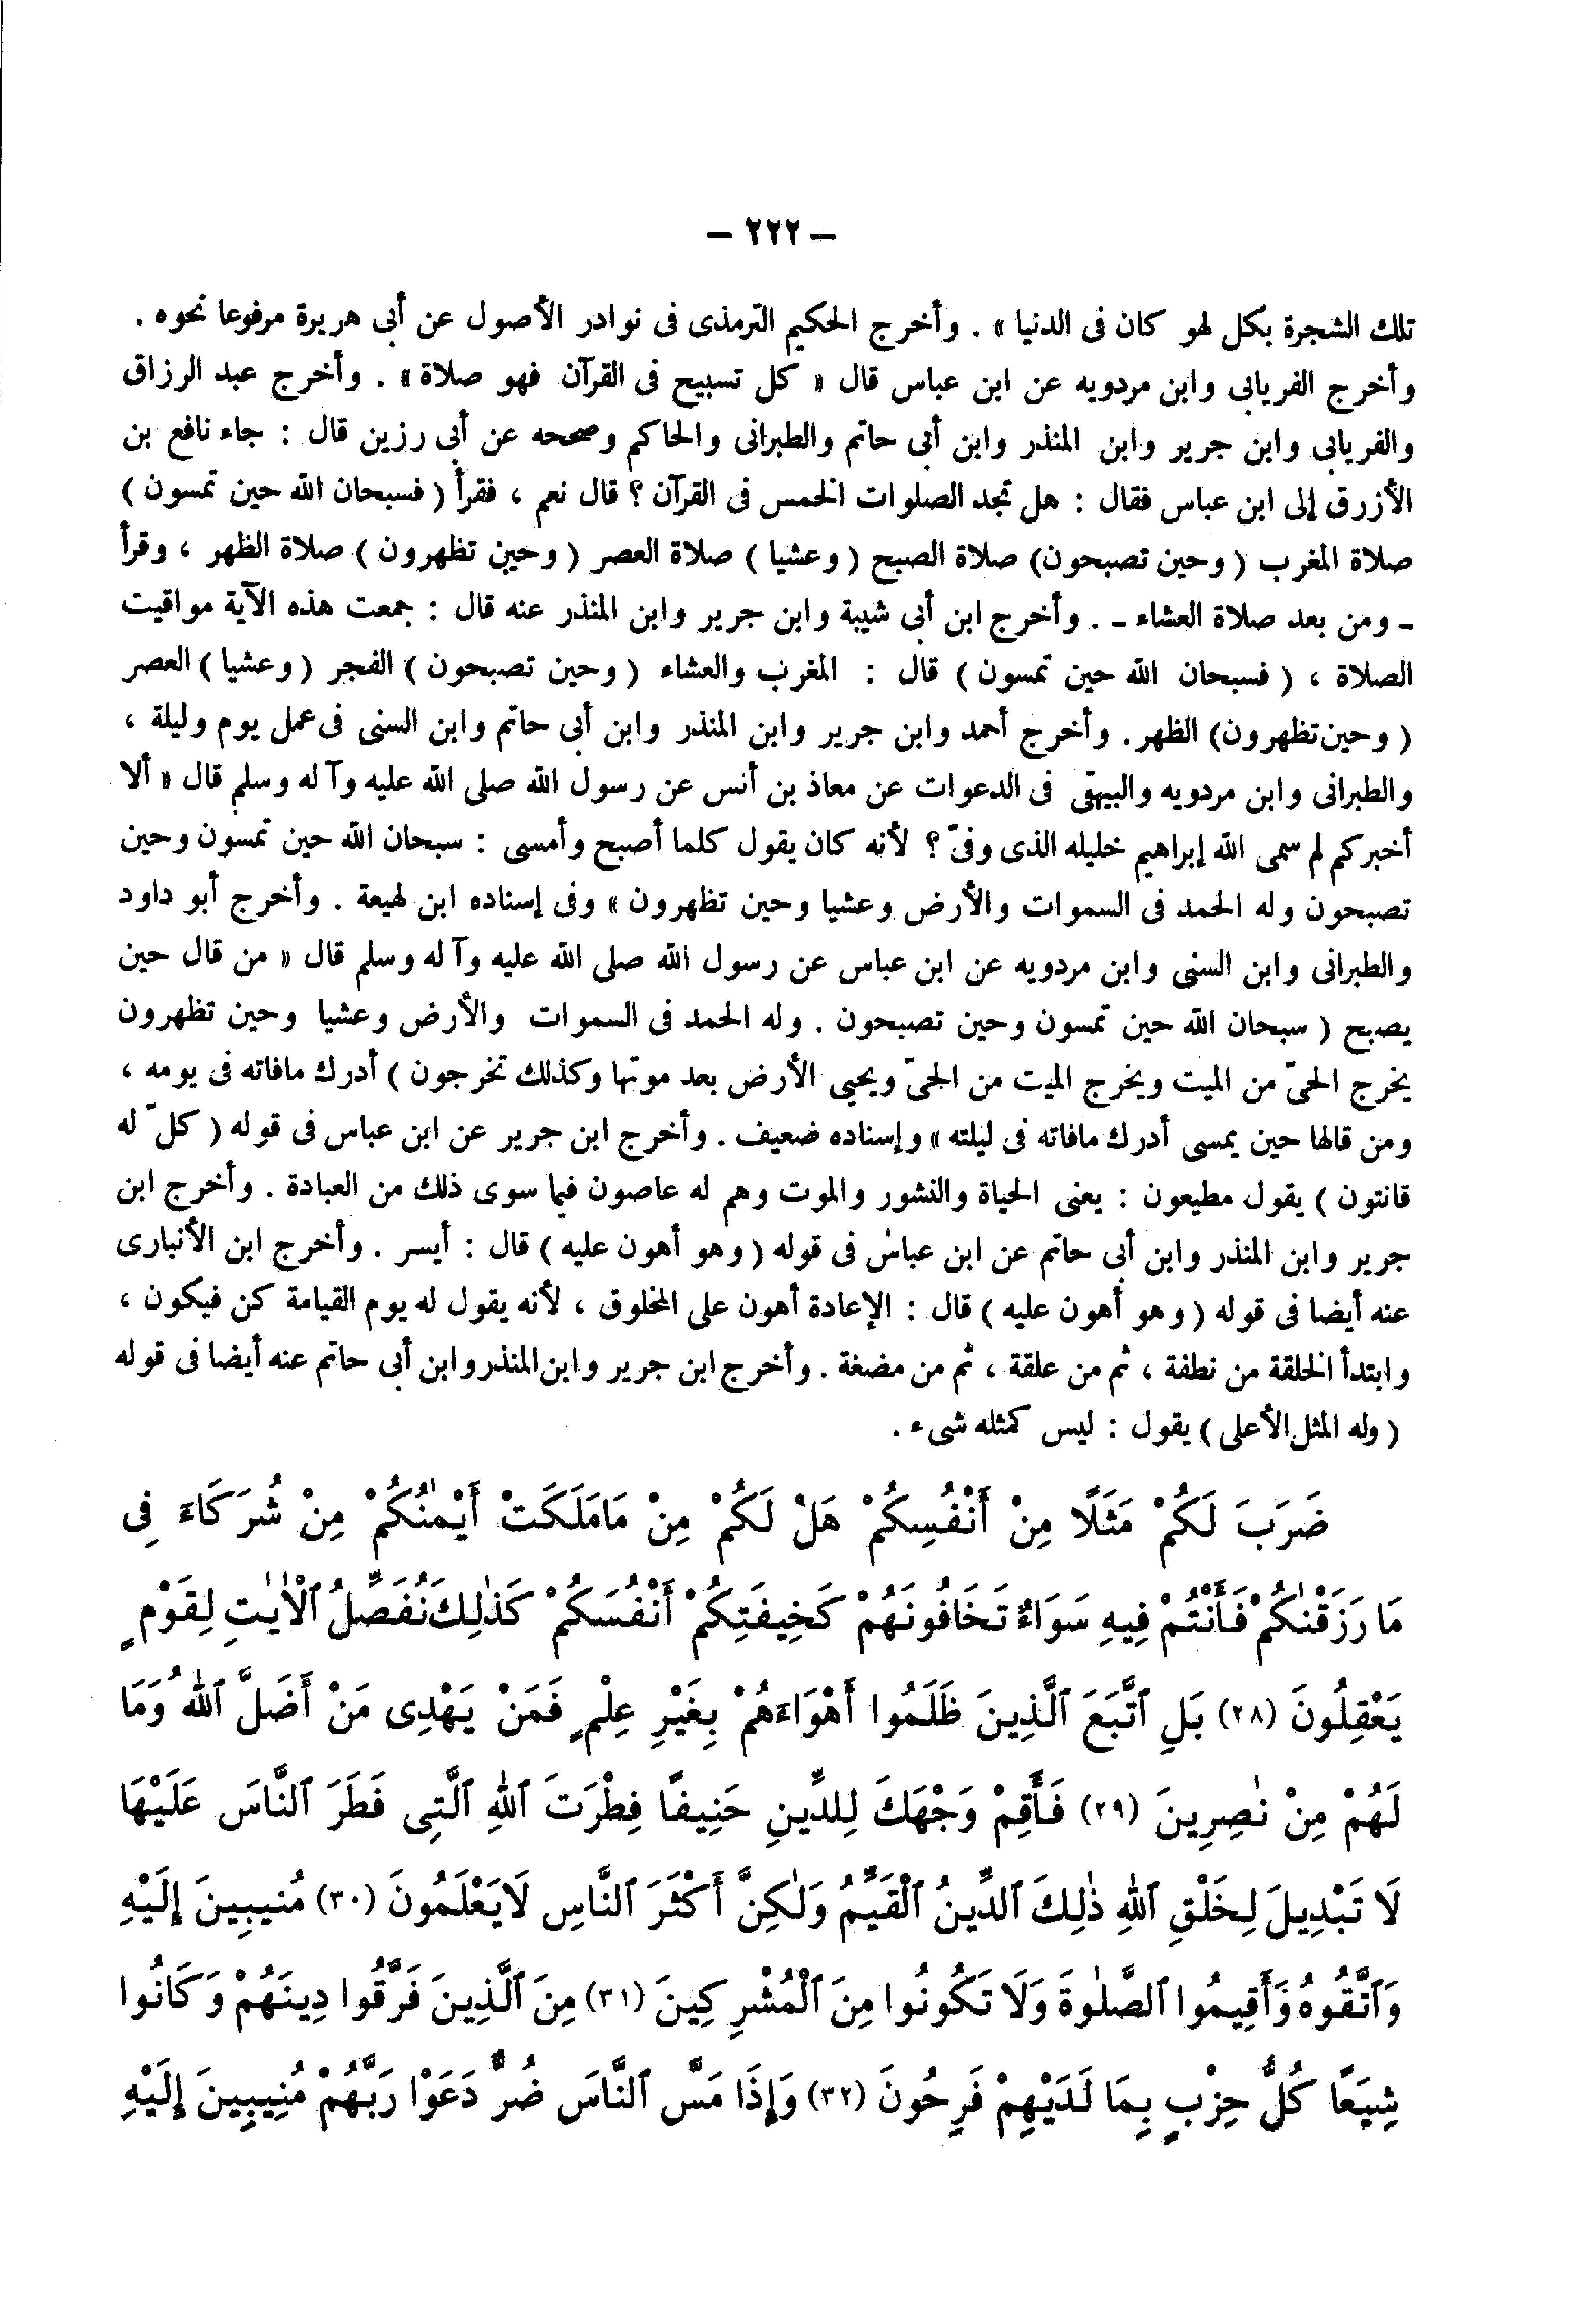 — ٢٢٢ —
تلك الشجرة بكل لهو كان فى الدنيا » . وأخرج الحكيم الترمذى فى نوادر الأصول عن أبى هريرة مرفوعا نحوه .
وأخرج الفريابى وابن مردويه عن ابن عباس قال « كل تسبيح فى القرآن فهو صلاة » . وأخرج عبد الرزاق
والفريابى وابن جرير وابن المنذر وابن أبى حاتم والطبرانى والحاكم وصححه عن أبى رزين قال : جاء نافع بن
الأزرق إلى ابن عباس فقال : هل تجد الصلوات الخمس فى القرآن ؟ قال نعم ، فقرأ ( فسبحان الله حين تمسون )
صلاة المغرب ( وحين تصبحون ) صلاة الصبح ( وعشيا ) صلاة العصر ( وحين تظهرون ) صلاة الظهر ، وقرأ
ـ ومن بعد صلاة العشاء ـ . وأخرج ابن أبى شيبة وابن جرير وابن المنذر عنه قال : جمعت هذه الآية مواقيت
الصلاة ، ( فسبحان الله حين تمسون ) قال : المغرب والعشاء ( وحين تصبحون ) الفجر ( وعشيا ) العصر
( وحين تظهرون ) الظهر . وأخرج أحمد وابن جرير وابن المنذر وابن أبى حاتم وابن السنى فى عمل يوم وليلة ،
والطبرانى وابن مردويه والبيهقى فى الدعوات عن معاذ بن أنس عن رسول الله صلى الله عليه وآله وسلم قال « ألا
أخبركم لم سمى الله إبراهيم خليله الذى وفىّ ؟ لأنه كان يقول كلما أصبح وأمسى : سبحان الله حين تمسون وحين
تصبحون وله الحمد فى السموات والأرض وعشيا وحين تظهرون » وفى إسناده ابن لهيعة . وأخرج أبو داود
والطبرانى وابن السنى وابن مردويه عن ابن عباس عن رسول الله صلى الله عليه وآله وسلم قال « من قال حين
يصبح ( سبحان الله حين تمسون وحين تصبحون . وله الحمد فى السموات والأرض وعشيا وحين تظهرون
يخرج الحىّ من الميت ويخرج الميت من الحىّ ويحيى الأرض بعد موتها وكذلك تخرجون ) أدرك مافاته فى يومه ،
ومن قالها حين يمسى أدرك مافاته فى ليلته » وإسناده ضعيف . وأخرج ابن جرير عن ابن عباس فى قوله ( كلّ له
قانتون ) يقول مطيعون : يعنى الحياة والنشور والموت وهم له عاصون فيما سوى ذلك من العبادة . وأخرج ابن
جرير وابن المنذر وابن أبى حاتم عن ابن عباس فى قوله ( وهو أهون عليه ) قال : أيسر . وأخرج ابن الأنبارى
عنه أيضا فى قوله ( وهو أهون عليه ) قال : الإعادة أهون على المخلوق ، لأنه يقول له يوم القيامة كن فيكون ،
وابتدأ الخلقة من نطفة ، ثم من علقة ، ثم من مضغة . وأخرج ابن جرير وابن المنذر وابن أبى حاتم عنه أيضا فى قوله
( وله المثل الأعلى ) يقول : ليس كمثله شىء .
ضَرَبَ لَكُمْ مَثَلًا مِنْ أَنْفُسِكُمْ هَلْ لَكُمْ مِنْ مَامَلَكَتْ أَيْمٰنُكُمْ مِنْ شُرَكَاءَ فِى
مَا رَزَقْنٰكُمْ فَأَنْتُمْ فِيهِ سَوَاءٌ تَخَافُونَهُمْ كَخِيفَتِكُمْ أَنْفُسَكُمْ كَذٰلِكَ نُفَصِّلُ ٱلْاٰيٰتِ لِقَوْمٍ
يَعْقِلُونَ (٢٨) بَلِ ٱتَّبَعَ ٱلَّذِينَ ظَلَمُوا أَهْوَاءَهُمْ بِغَيْرِ عِلْمٍ فَمَنْ يَهْدِى مَنْ أَضَلَّ ٱللهُ وَمَا
لَهُمْ مِنْ نٰصِرِينَ (٢٩) فَأَقِمْ وَجْهَكَ لِلدِّينِ حَنِيفًا فِطْرَتَ ٱللهِ ٱلَّتِى فَطَرَ ٱلنَّاسَ عَلَيْهَا
لَا تَبْدِيلَ لِخَلْقِ ٱللهِ ذٰلِكَ ٱلدِّينُ ٱلْقَيِّمُ وَلٰكِنَّ أَكْثَرَ ٱلنَّاسِ لَايَعْلَمُونَ (٣٠) مُنِيبِينَ إِلَيْهِ
وَٱتَّقُوهُ وَأَقِيمُوا ٱلصَّلٰوةَ وَلَا تَكُونُوا مِنَ ٱلْمُشْرِكِينَ (٣١) مِنَ ٱلَّذِينَ فَرَّقُوا دِينَهُمْ وَكَانُوا
شِيَعًا كُلُّ حِزْبٍ بِمَا لَدَيْهِمْ فَرِحُونَ (٣٢) وَإِذَا مَسَّ ٱلنَّاسَ ضُرٌّ دَعَوْا رَبَّهُمْ مُنِيبِينَ إِلَيْهِ